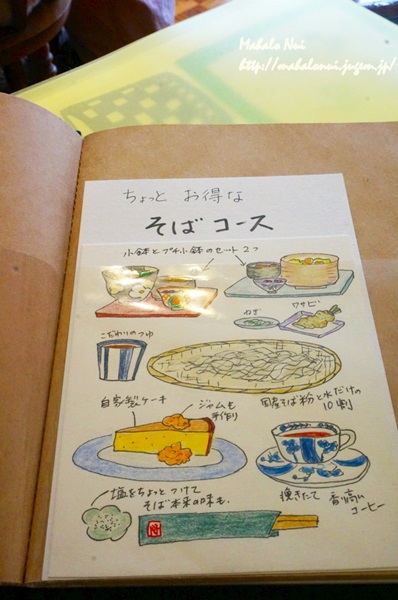 Mahalo Nui
http://mahalonui.jugem.jp/
ちょっと お得な
そば コース
小鉢とプチ小鉢のセート2つ
ワサビ
ねぎ
こだわりのつゆ
自家製ケーキ
ジャムも
手作り
国産そば粉と水だけの
10割
塩をちょっとつけて
そば本来の味も、
挽きたて
香り高い
コーヒー